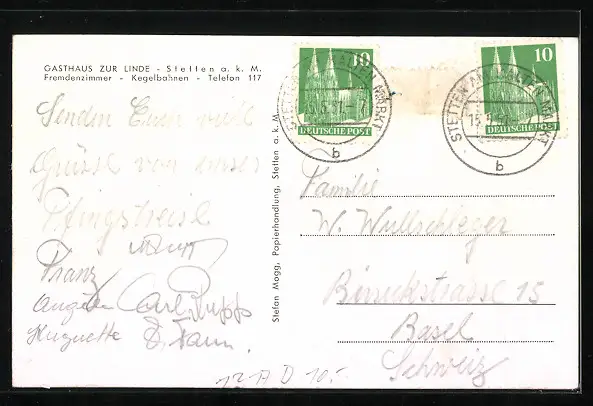 GASTHAUS ZUR LINDE - Stetten a. k. M.
Fremdenzimmer - Kegelbahnen - Telefon 117
Senden Euch viele
Grüsse von unserer
Pfingstreise
Franz
Huguette
Stefan Mogg, Papierhandlung, Stetten a. k. M.
10
DEUTSCHE POST
STETTEN AM KALTEN MARKT
b
10
DEUTSCHE POST
STETTEN AM KALTEN MARKT
b
Familie
W. Wullschleger
15
Basel
Schweiz